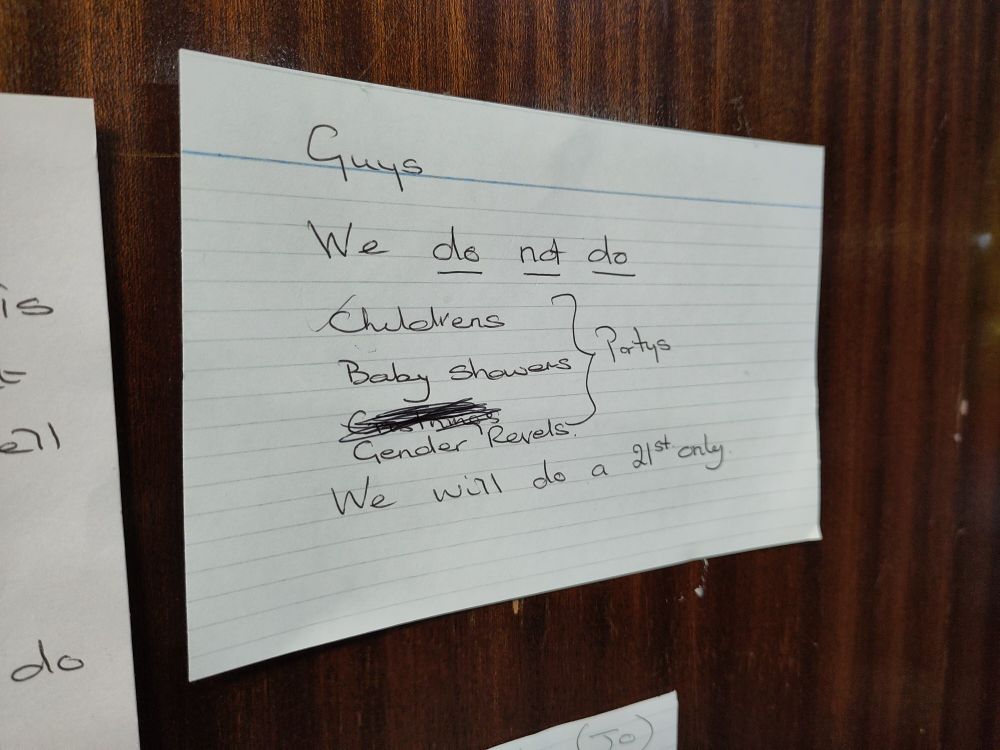 Guys
We do not do
Childrens
Baby Showers
Partys
Gender Revels.
We will do a 21st only.
is
do
(JO)